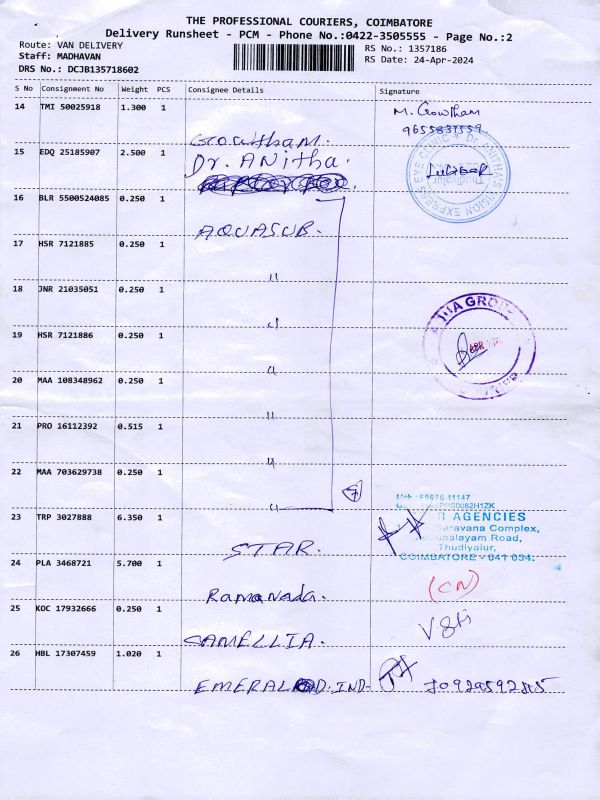 THE PROFESSIONAL COURIERS, COIMBATORE
Delivery Runsheet - PCM - Phone No.:0422-3505555 - Page No.:2
Route: VAN DELIVERY
RS No.: 1357186
Staff: MADHAVAN
RS Date: 24-Apr-2024
DRS No.: DCJB135718602
S No Consignment No Weight PCS Consignee Details Signature
14 TMI 50025918 1.300 1 M. Gowtham
9655837559
Gowtham.
15 EDQ 25185907 2.500 1 Dr. ANitha.
DR ANITHA'S VISION EXPRESS EYE CLINIC
16 BLR 5500524085 0.250 1
AQUASUB.
17 HSR 7121885 0.250 1
"
18 JNR 21035051 0.250 1
"
19 HSR 7121886 0.250 1
GROUP
"
20 MAA 108348962 0.250 1
"
21 PRO 16112392 0.515 1
"
22 MAA 703629738 0.250 1
" 7
23 TRP 3027888 6.350 1
AGENCIES
Saravana Complex,
Road,
Thudiyalur,
COIMBATORE - 641 034.
STAR.
24 PLA 3468721 5.700 1
(CN)
Ramanada.
25 KOC 17932666 0.250 1
CAMELLIA.
26 HBL 17307459 1.020 1
EMERALD. IND-